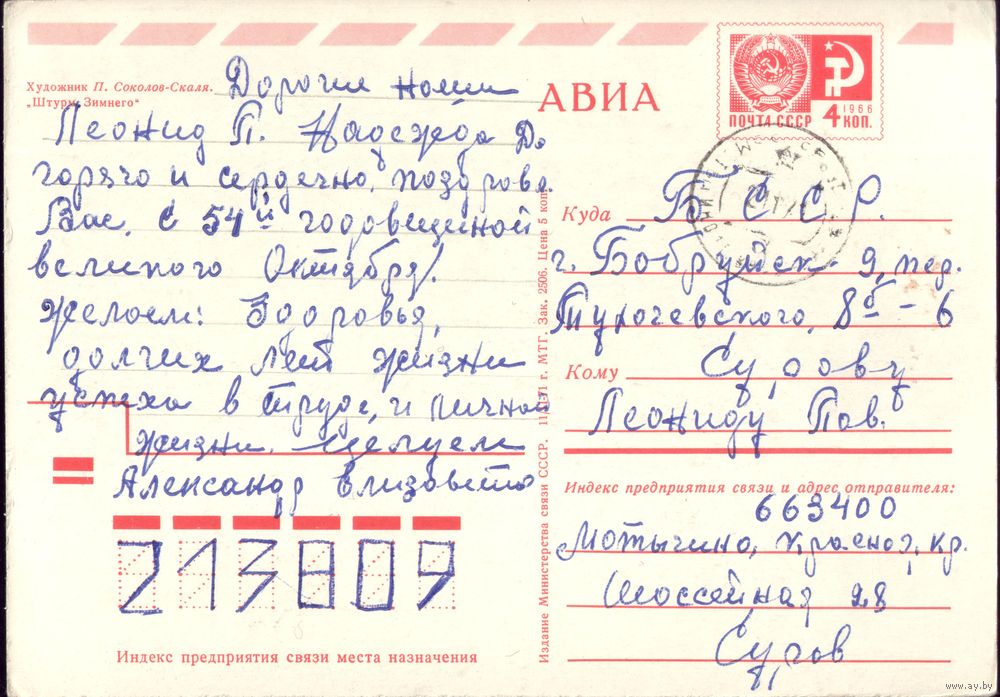 Художник П. Соколов-Скаля.
„Штурм Зимнего"
Дорогие наши
Леонид П. Надежда Да
горячо и сердечно, поздровл.
Вас, с 54й годовщиной
великого Октября!
желоем: Здоровья,
долгих лет жизни
успеха в труде, и личной
жизни. целуем
Александр Елизовето
213809
Индекс предприятия связи места назначения
Издание Министерства связи СССР. 11/II-71 г. МТГ. Зак. 2506. Цена 5 коп.
АВИА
ПОЧТА СССР
1966
4 КОП.
Куда Б С С Р.
г. Бобруйск 9, пер.
Тухочевского, 8б – 6
Кому
Леониду Пав.
Индекс предприятия связи и адрес отправителя:
663400
Мотыгино, Красноя, кр.
Шоссейная 28
www.ay.by